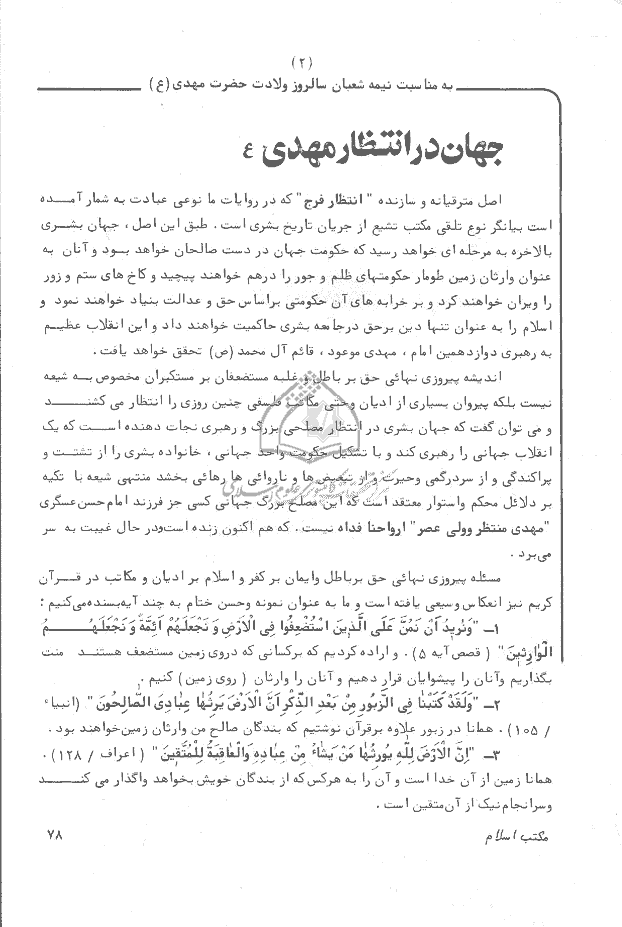 (۲)
به مناسبت نیمه شعبان سالروز ولادت حضرت مهدی (ع)
جهان در انتظار مهدی ع
اصل مترقیانه و سازنده " انتظار فرج " که در روایات ما نوعی عبادت به شمار آمده
است بیانگر نوع تلقی مکتب تشیع از جریان تاریخ بشری است . طبق این اصل ، جهان بشری
بالاخره به مرحله ای خواهد رسید که حکومت جهان در دست صالحان خواهد بود و آنان به
عنوان وارثان زمین طومار حکومتهای ظلم و جور را درهم خواهند پیچید و کاخ های ستم و زور
را ویران خواهند کرد و بر خرابه های آن حکومتی براساس حق و عدالت بنیاد خواهند نمود و
اسلام را به عنوان تنها دین برحق درجامعه بشری حاکمیت خواهند داد و این انقلاب عظیم
به رهبری دوازدهمین امام ، مهدی موعود ، قائم آل محمد (ص) تحقق خواهد یافت .
اندیشه پیروزی نهائی حق بر باطل و غلبه مستضعفان بر مستکبران مخصوص به شیعه
نیست بلکه پیروان بسیاری از ادیان وحتی مکاتب فلسفی چنین روزی را انتظار می کشند
و می توان گفت که جهان بشری در انتظار مصلحی بزرگ و رهبری نجات دهنده است که یک
انقلاب جهانی را رهبری کند و با تشکیل حکومت واحد جهانی ، خانواده بشری را از تشتت و
پراکندگی و از سردرگمی وحیرت و از تبعیض ها و ناروائی ها رهائی بخشد منتهی شیعه با تکیه
بر دلائل محکم واستوار معتقد است که این مصلح بزرگ جهانی کسی جز فرزند امام حسن عسگری
"مهدی منتظر وولی عصر" ارواحنا فداه نیست . که هم اکنون زنده است ودر حال غیبت به سر
می برد .
مسئله پیروزی نهائی حق برباطل وایمان بر کفر و اسلام بر ادیان و مکاتب در قرآن
کریم نیز انعکاس وسیعی یافته است و ما به عنوان نمونه وحسن ختام به چند آیه بسنده می کنیم :
۱ــ "وَنُرِیدُ اَنْ نَمُنَّ عَلَی الَّذِینَ اسْتُضْعِفُوا فِی الْاَرْضِ وَ نَجْعَلَهُمْ اَئِمَّةً وَ نَجْعَلَهُمُ
الْوارِثِینَ" ( قصص آیه ۵) . و اراده کردیم که برکسانی که دروی زمین مستضعف هستند منت
بگذاریم وآنان را پیشوایان قرار دهیم و آنان را وارثان ( روی زمین ) کنیم .
۲ــ "وَلَقَدْ کَتَبْنا فِی الزَّبُورِ مِنْ بَعْدِ الذِّکْرِ اَنَّ الْاَرْضَ یَرِثُها عِبادِیَ الصَّالِحُونَ" (انبیاء
/ ۱۰۵) . همانا در زبور علاوه برقرآن نوشتیم که بندگان صالح من وارثان زمین خواهند بود .
۳ــ "اِنَّ الْاَرْضَ لِلّهِ یُورِثُها مَنْ یَشاءُ مِنْ عِبادِهِ وَالْعاقِبَةُ لِلْمُتَّقِینَ" ( اعراف / ۱۲۸) .
همانا زمین از آن خدا است و آن را به هرکس که از بندگان خویش بخواهد واگذار می کند
وسرانجام نیک از آن متقین است .
مکتب اسلام
۷۸